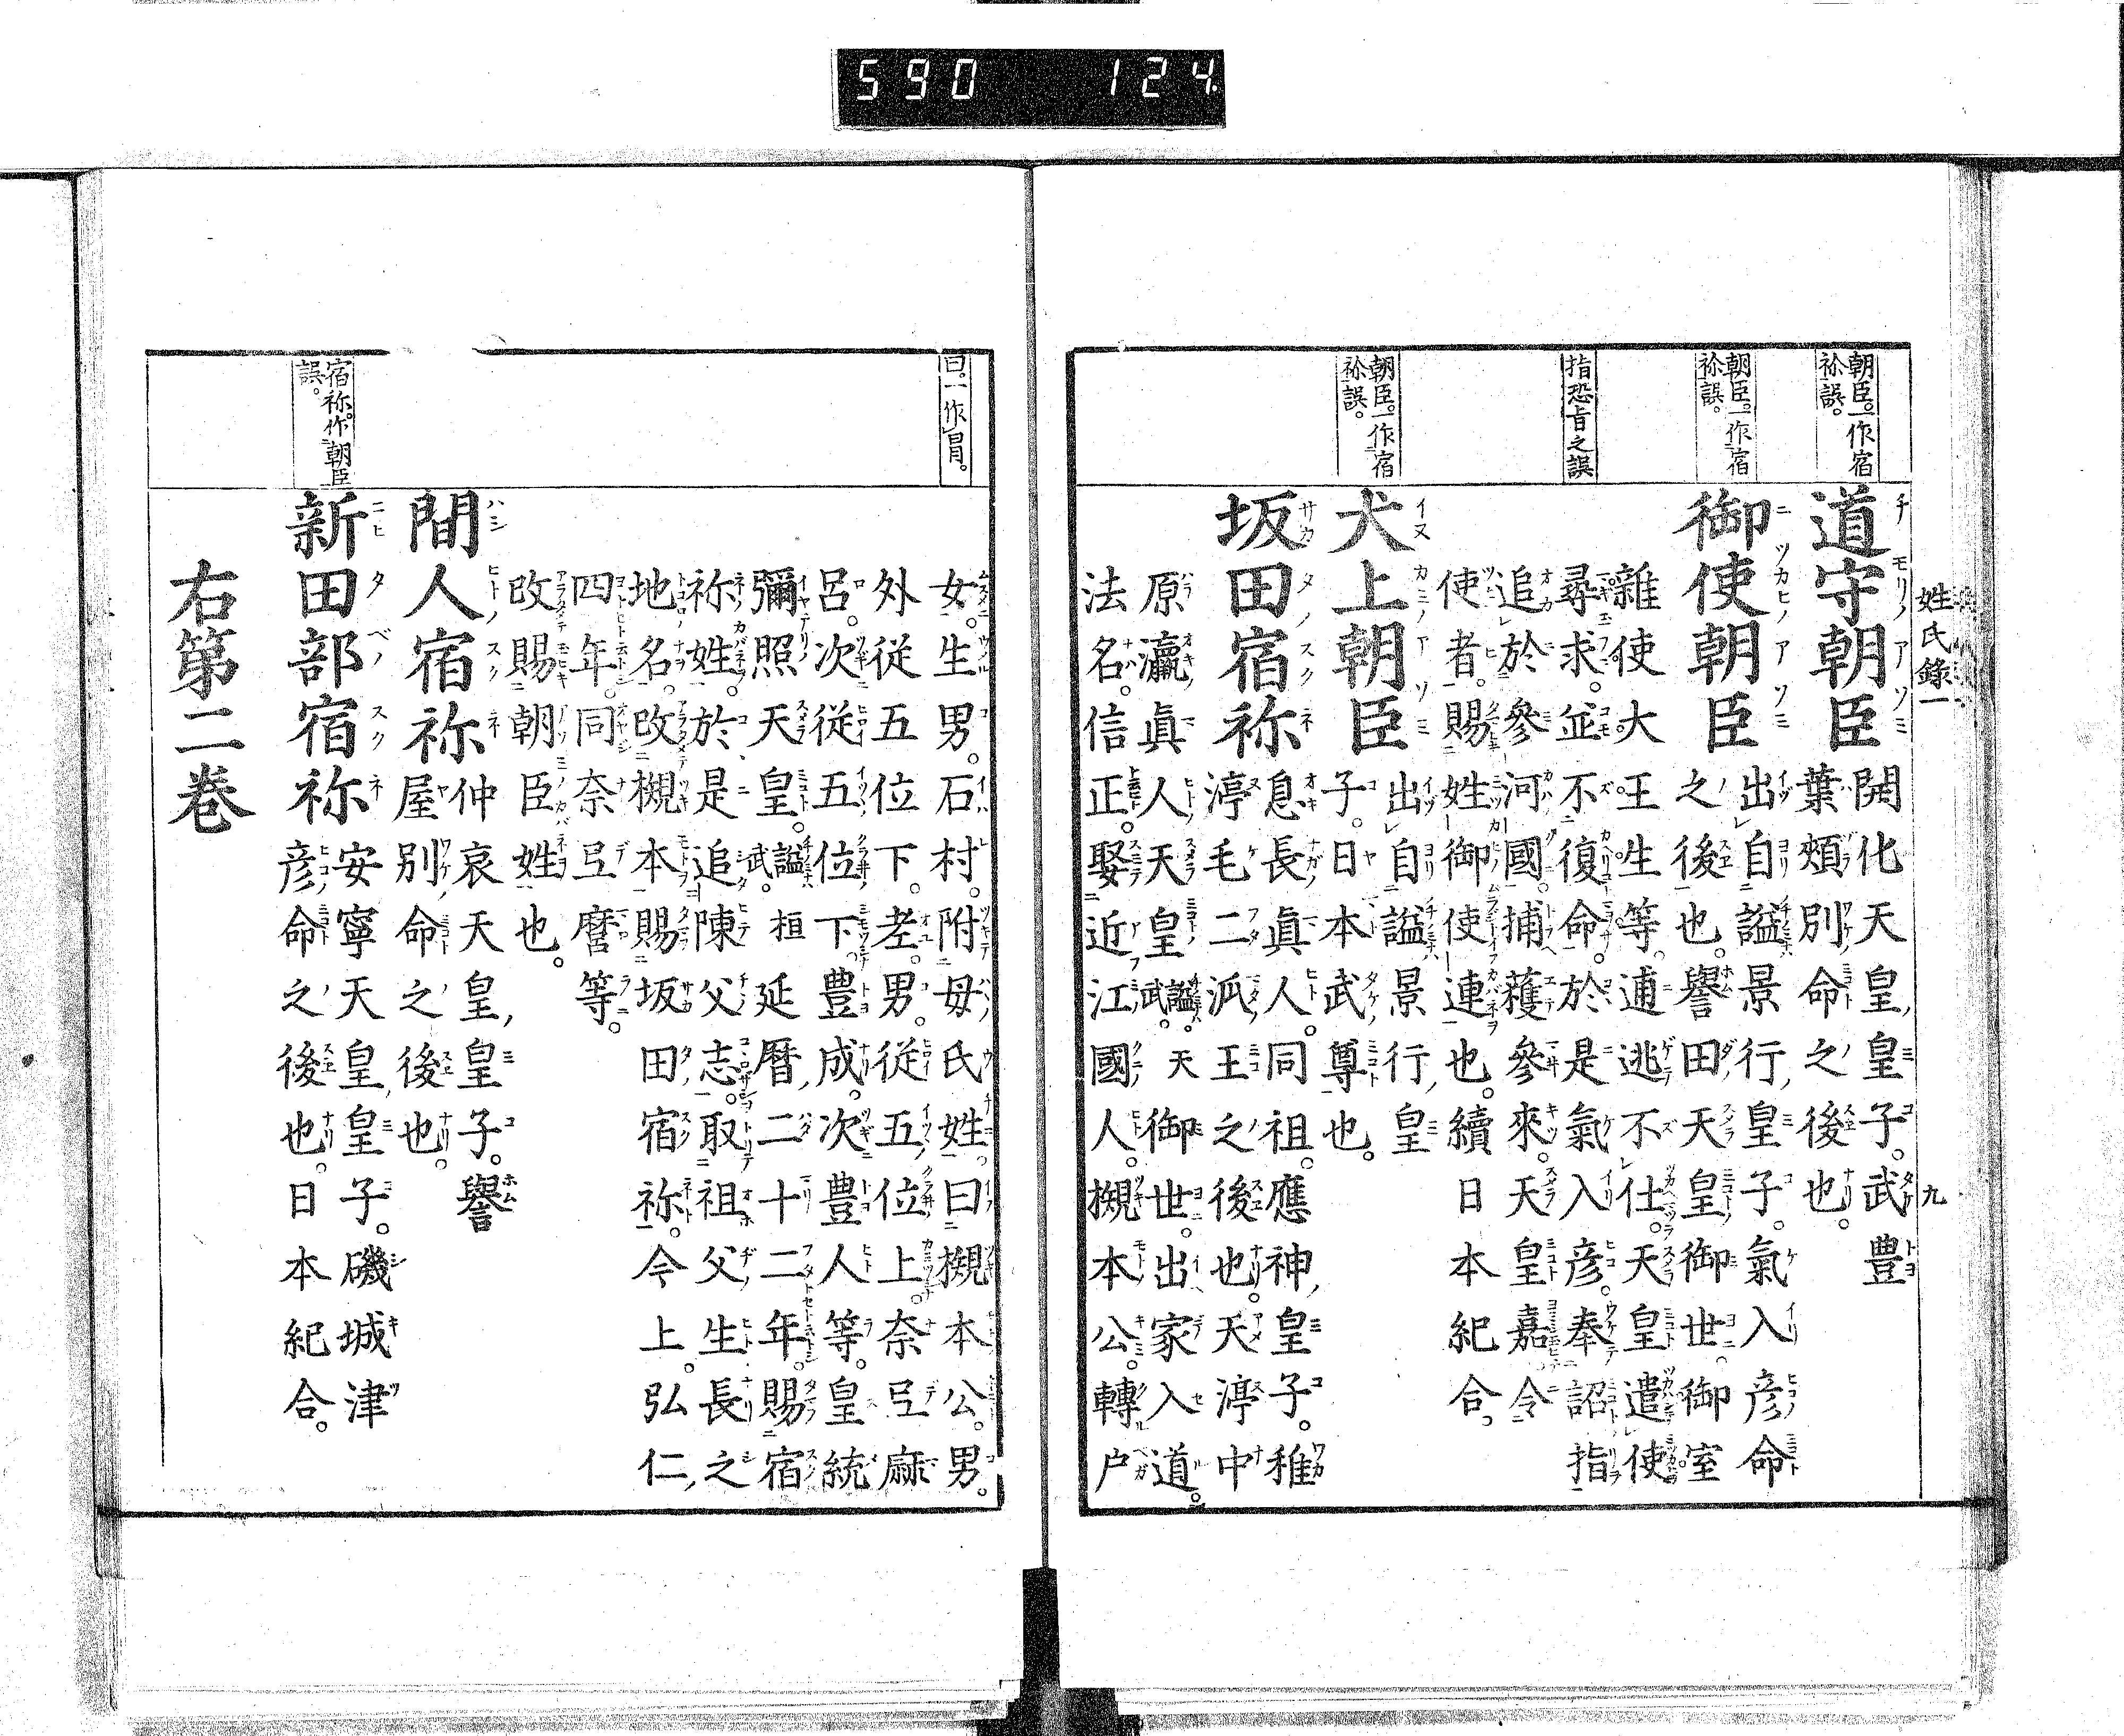 590 124.
姓氏錄一
九
朝臣。一作宿
祢誤。
朝臣。一作宿
祢誤。
指恐旨之誤
朝臣。一作宿
祢誤。
道守朝臣 開化天皇,皇子。武豊
葉頰別命之後也。
御使朝臣 出自謚景行,皇子。氣入彦命
之後也。譽田天皇御世。御室
雜使大王生等。逋逃不仕。天皇遣使
尋求。並不復命。於是氣入彦。奉詔指
追於參河國。捕獲參來。天皇嘉令
使者。賜姓御使連也。續日本紀合。
犬上朝臣 出自謚景行,皇
子。日本武尊也。
坂田宿祢 息長眞人。同祖。應神,皇子。稚
渟毛二派王之後也。天渟中
原瀛眞人,天皇 謚。天武。御世。出家入道。
法名。信正。娶近江國人。槻本公。轉戸
曰。一作冒。
女。生男。石村。附母氏姓。曰槻本公。男。
外従五位下。老。男。従五位上。奈弖麻
呂。次従五位下。豊成。次豊人等。皇統
彌照天皇。謚桓武。延暦,二十二年。賜宿
祢姓。於是追陳父志。取祖父生長之
地名。改槻本賜坂田宿祢。今上。弘仁,
四年。同奈弖麿等。
改賜朝臣姓也。
間人宿祢 仲哀天皇,皇子。譽
屋別命之後也。
宿祢。作朝臣
誤。
新田部宿祢 安寧天皇,皇子。磯城津
彦命之後也。日本紀合。
右第二巻